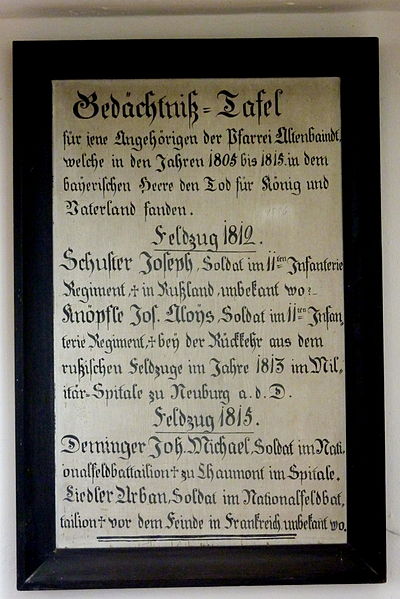 Gedächtniß-Tafel
für jene Angehörigen der Pfarrei Altenbaindt,
welche in den Jahren 1805 bis 1815 in dem
bayerischen Heere den Tod für König und
Vaterland fanden.
Feldzug 1812.
Schuster Joseph, Soldat im 11ten Infanterie
Regiment, † in Rußland, unbekant wo.
Knöpfle Jos. Aloÿs, Soldat im 11ten Infan,
terie Regiment, † beÿ der Rückkehr aus dem
rußischen Feldzuge im Jahre 1813 im Mil,
itär-Spitale zu Neuburg a. d. D.
Feldzug 1815.
Deminger Joh. Michael, Soldat im Nati,
onalfeldbattailion † zu Chaumont im Spitale.
Liedler Urban, Soldat im Nationalfeldbat,
tailion † vor dem Feinde in Frankreich, unbekant wo.